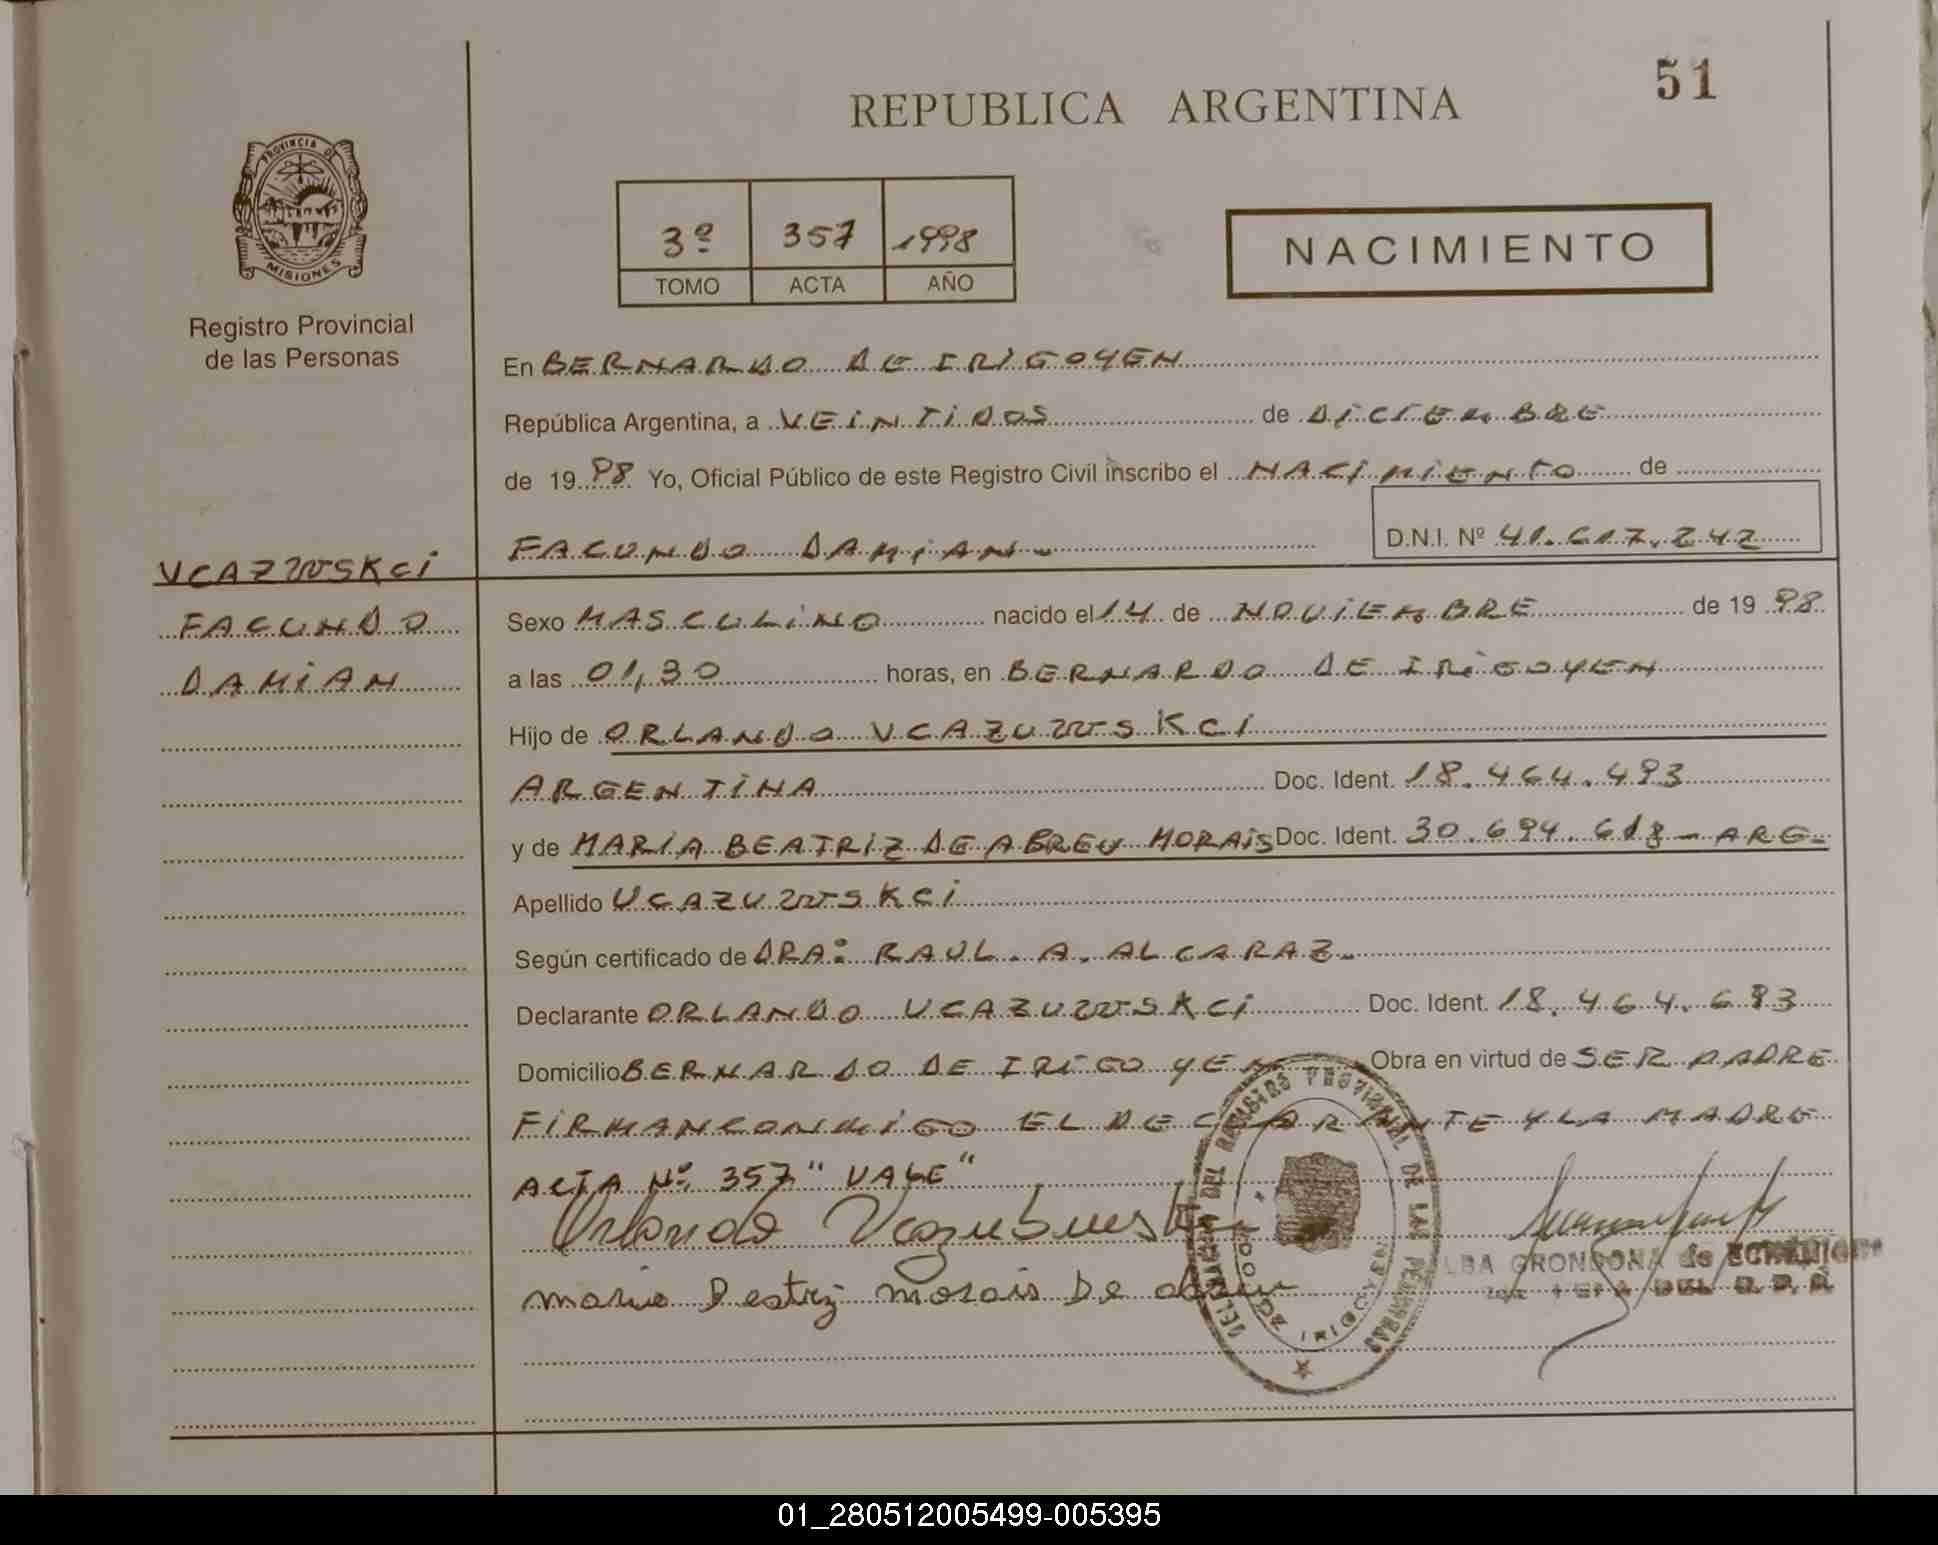 51
REPUBLICA ARGENTINA
PROVINCIA DE
MISIONES
Registro Provincial
de las Personas
3º 357 1998
TOMO ACTA AÑO
NACIMIENTO
En BERNARDO DE IRIGOYEN
República Argentina, a VEINTIDOS de DICIEMBRE
de 1998 Yo, Oficial Público de este Registro Civil inscribo el NACIMIENTO de
FACUNDO DAMIAN D.N.I. Nº 41.617.242
VCAZWSKCI
FACUNDO
DAMIAN
Sexo MASCULINO nacido el 14 de NOVIEMBRE de 1998
a las 01,30 horas, en BERNARDO DE IRIGOYEN
Hijo de ORLANDO VCAZUWSKCI
ARGENTINA Doc. Ident. 18.464.493
y de MARIA BEATRIZ DE ABREU MORAIS Doc. Ident. 30.694.618 - ARG-
Apellido UCAZUWSKCI
Según certificado de DRA: RAUL. A. ALCARAZ.
Declarante ORLANDO UCAZUWSKCI Doc. Ident. 18.464.693
Domicilio BERNARDO DE IRIGOYEN Obra en virtud de SER PADRE
FIRMAN CONMIGO EL DECLARANTE Y LA MADRE
ACTA Nº 357 "VALE"
Orlando
Maria Beatriz Morais De Abreu
DELEGACIÓN DEL REGISTRO PROVINCIAL DE LAS PERSONAS
IRIGOYEN
ALBA GRONDONA de
JEFA DEL R. P.
01_280512005499-005395